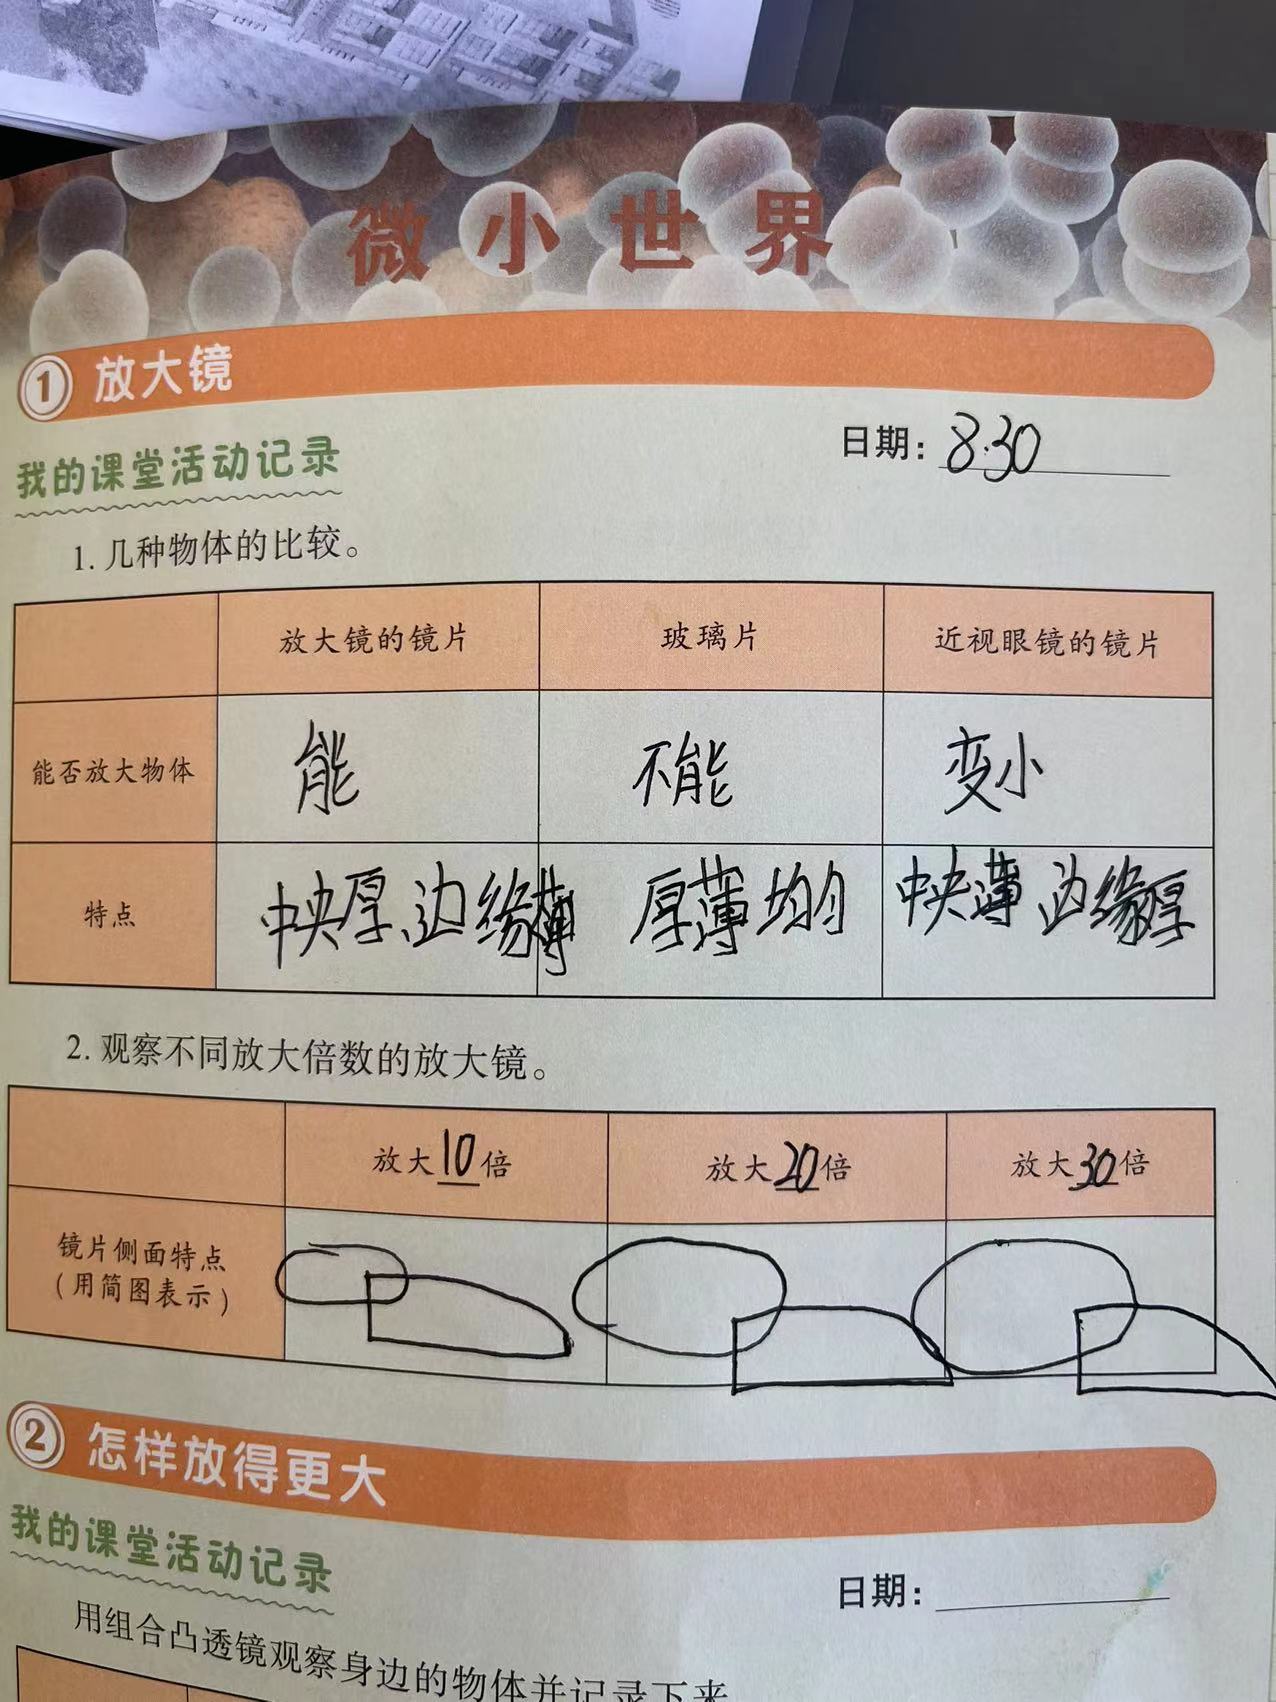 微小世界
1 放大镜
我的课堂活动记录
日期：8.30
1. 几种物体的比较。
放大镜的镜片 玻璃片 近视眼镜的镜片
能否放大物体 能 不能 变小
特点 中央厚、边缘薄 厚薄均匀 中央薄 边缘厚
2. 观察不同放大倍数的放大镜。
放大10倍 放大20倍 放大30倍
镜片侧面特点
（用简图表示）
2 怎样放得更大
我的课堂活动记录
日期：
用组合凸透镜观察身边的物体并记录下来